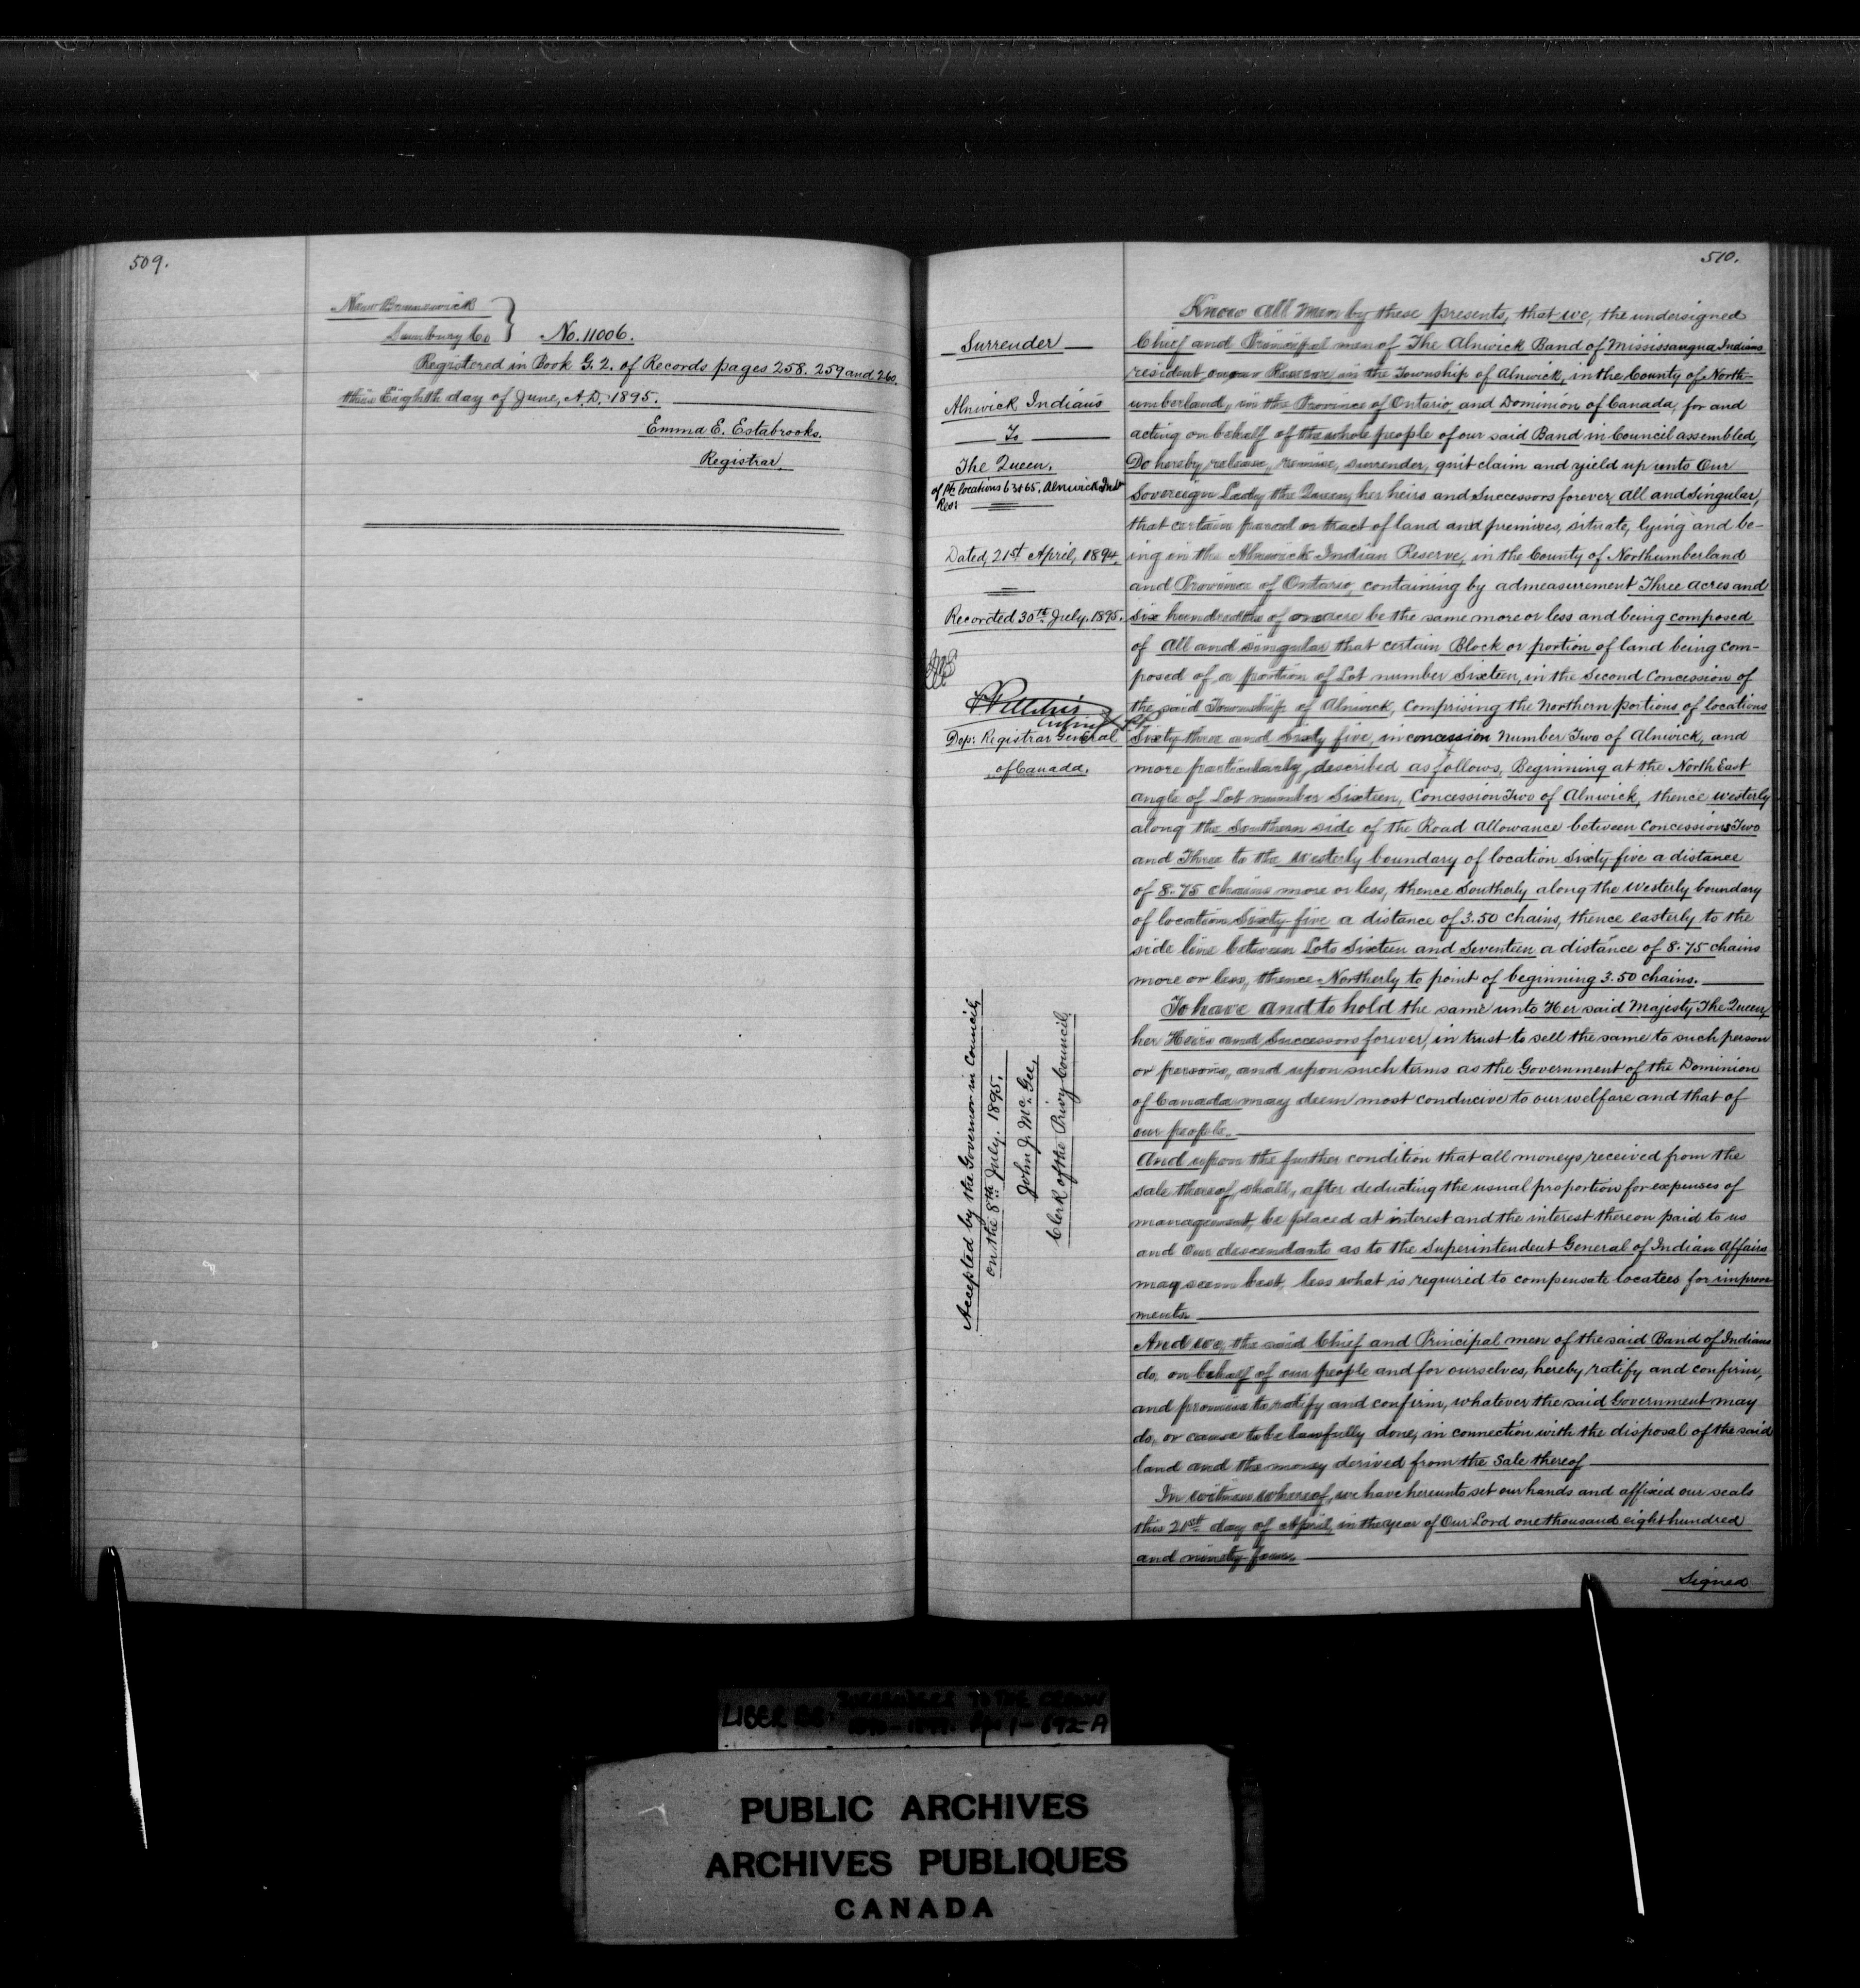 509.
New Brunswick
Sunbury Co } No. 11006.
Registered in Book G. 2. of Records pages 258. 259 and 260.
this Eighth day of June, A.D. 1895.
Emma E. Estabrooks.
Registrar
510.
Surrender
Alnwick Indians
To
The Queen.
of Pt. locations 63 & 65, Alnwick Ind
Res:
Dated, 21st April, 1894.
Recorded 30th July. 1895.
Dep: Registrar General
of Canada.
Accepted by the Governor in Council,
on the 8th July. 1895.
John J. McGee,
Clerk of the Privy Council.
Know all men by these presents, that we, the undersigned
Chief and Principal men of The Alnwick Band of Mississaugua Indians
resident on our Reserve in the Township of Alnwick, in the County of North-
umberland, in the Province of Ontario and Dominion of Canada, for and
acting on behalf of the whole people of our said Band in Council assembled,
Do hereby release, remise, surrender, quit claim and yield up unto Our
Sovereign Lady the Queen, her heirs and Successors forever, all and Singular,
that certain parcel or tract of land and premises, situate, lying and be-
ing in the Alnwick Indian Reserve, in the County of Northumberland
and Province of Ontario, containing by admeasurement Three acres and
six hundredths of one acre be the same more or less and being composed
of All and singular that certain Block or portion of land being com-
posed of a portion of Lot number Sixteen, in the Second Concession of
the said Township of Alnwick, comprising the Northern portions of locations
Sixty three and Sixty five, in concession Number Two of Alnwick, and
more particularly described as follows, Beginning at the North East
angle of Lot number Sixteen, Concession Two of Alnwick, thence westerly
along the Southern side of the Road allowance between Concessions Two
and Three to the Westerly boundary of location Sixty-five a distance
of 8.75 chains more or less, thence Southerly along the Westerly boundary
of location Sixty-five a distance of 3.50 chains, thence easterly to the
side line between Lots Sixteen and Seventeen a distance of 8.75 chains
more or less, thence Northerly to point of beginning 3.50 chains.
To have and to hold the same unto Her said Majesty The Queen,
her Heirs and Successors forever, in trust to sell the same to such person
or persons, and upon such terms as the Government of the Dominion
of Canada may deem most conducive to our welfare and that of
our people.
And upon the further condition that all moneys received from the
sale thereof shall, after deducting the usual proportion for expenses of
management, be placed at interest and the interest thereon paid to us
and our descendants as to the Superintendent General of Indian Affairs
may seem best, less what is required to compensate locatees for improve
ments.
And we, the said Chief and Principal men of the said Band of Indians
do, on behalf of our people and for ourselves, hereby ratify and confirm,
and promise to ratify and confirm, whatever the said Government may
do, or cause to be lawfully done, in connection with the disposal of the said
land and the money derived from the Sale thereof
In witness whereof, we have hereunto set our hands and affixed our seals
this 21st day of April, in the year of Our Lord one thousand eight hundred
and ninety-four
Signed
LIBER SURRENDERS TO THE CROWN
PUBLIC ARCHIVES
ARCHIVES PUBLIQUES
CANADA